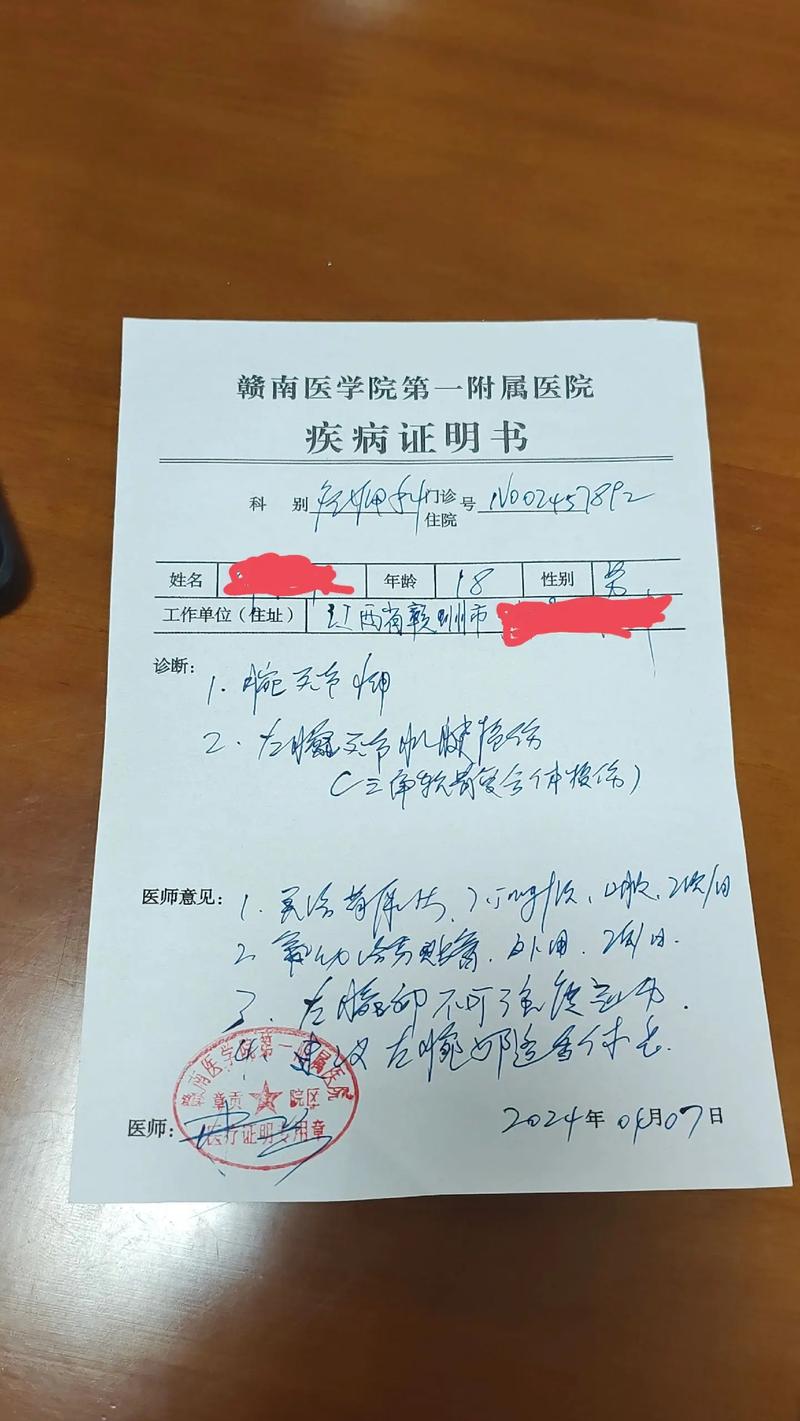 赣南医学院第一附属医院
疾病证明书
科 别 门诊 住院 号 N002457892
姓名 年龄 18 性别 男
工作单位（住址） 江西省赣州市
诊断：
1. 腕关节
2. 左腕关节肌腱损伤
（三角软骨复合体损伤）
医师意见： 1. 口服, 2次/日
2. 贴膏, 外用, 2次/日.
3. 左腕部不可强度运动.
4. 建议左腕部
赣南医学院第一附属医院
章贡 院区
医疗证明专用章
医师：
2024年04月07日